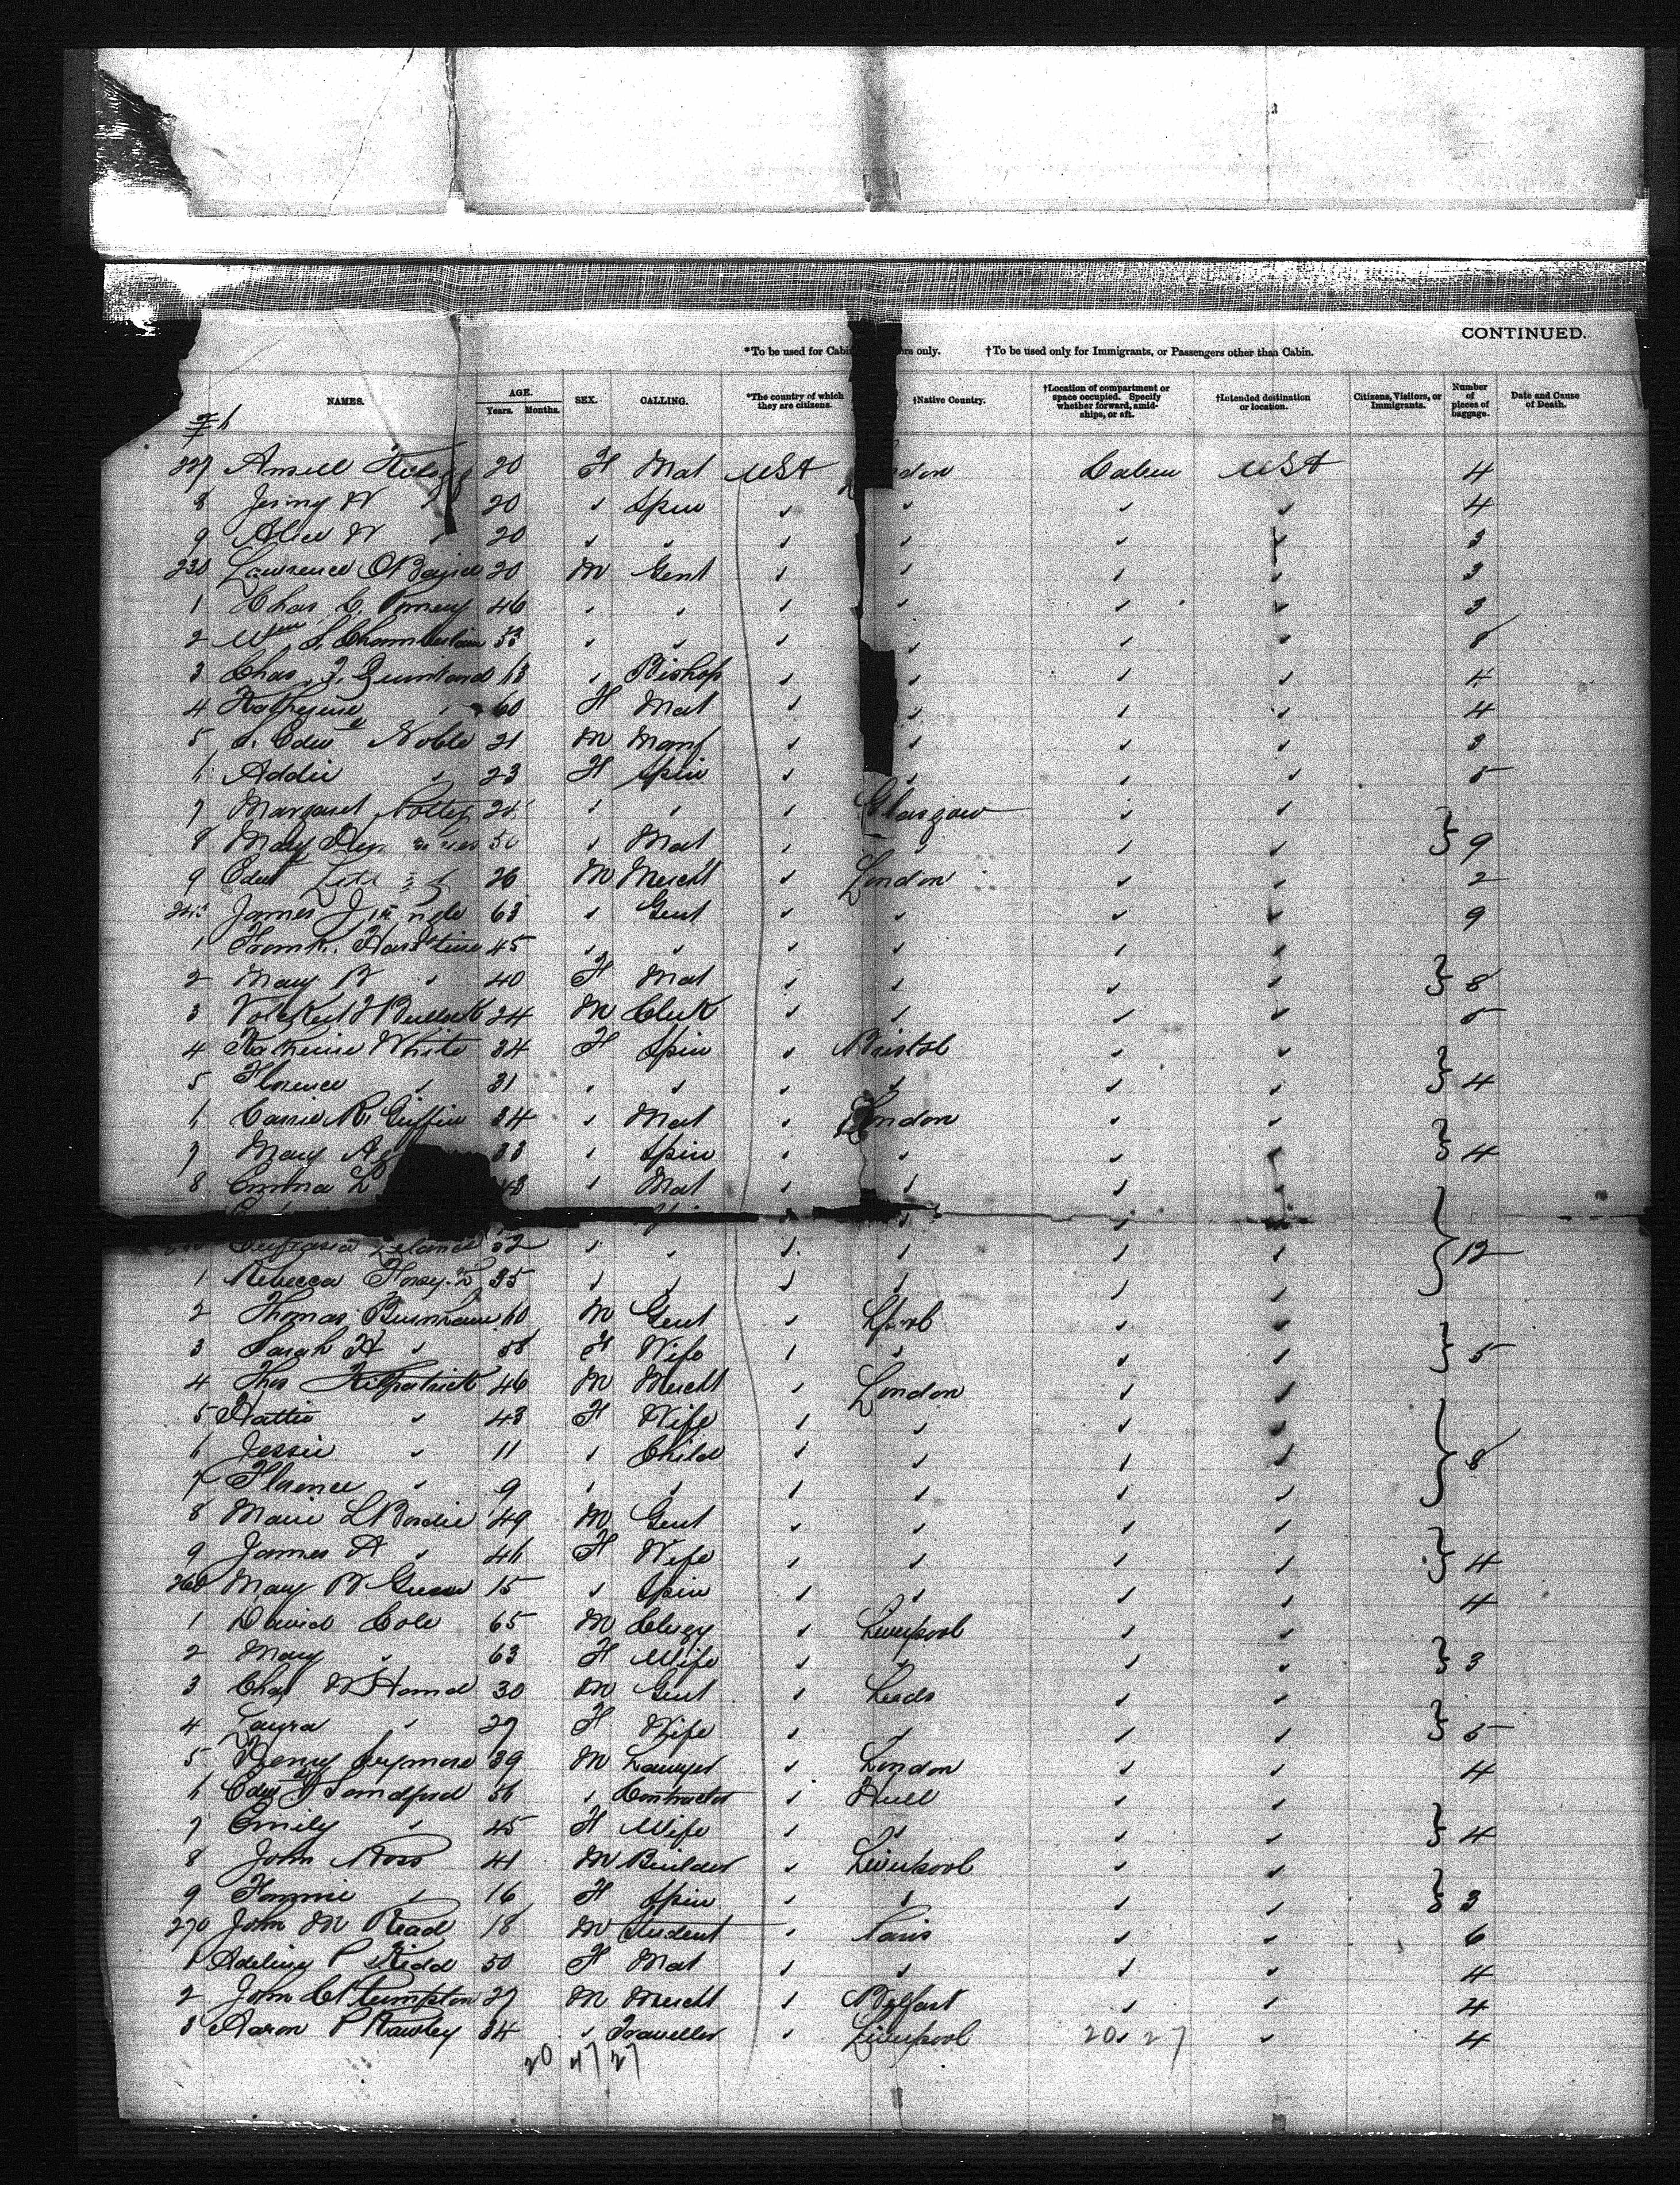 CONTINUED.
*To be used for Cabin ers only. †To be used only for Immigrants, or Passengers other than Cabin.
NAMES. AGE. Years. Months. SEX. CALLING. *The country of which they are citizens. †Native Country. †Location of compartment or space occupied. Specify whether forward, amidships, or aft. †Intended destination or location. Citizens, Visitors, or Immigrants. Number of pieces of baggage. Date and Cause of Death.
227 20 F Mat USA don USA 4
8 20 ✓ Spin ✓ ✓ ✓ ✓ 4
9 Alice W ✓ 20 ✓ ✓ ✓ ✓ ✓ ✓ 3
230 Lawrence 20 M Gent ✓ ✓ ✓ ✓ 3
1 Chas C. 46 ✓ ✓ ✓ ✓ ✓ ✓ 3
2 Wm S. Chamberlain ✓ ✓ ✓ ✓ ✓ ✓ 8
3 Chas 63 ✓ Bishop ✓ ✓ ✓ ✓ 4
4 Katherine ✓ 60 F Mat ✓ ✓ ✓ ✓ 4
5 S. Edwd Noble 21 M Manf ✓ ✓ ✓ ✓ 3
6 Addie ✓ 23 F Spin ✓ ✓ ✓ ✓ 5
7 Margaret 24 ✓ ✓ ✓ Glasgow ✓ ✓
8 Mary 50 ✓ Mat ✓ ✓ ✓ ✓ } 9
9 Edwd 26 M Mercht ✓ London ✓ ✓ 2
James 63 ✓ Gent ✓ ✓ ✓ ✓ 9
1 Frank 45 ✓ ✓ ✓ ✓ ✓ ✓
2 Mary B ✓ 40 F Mat ✓ ✓ ✓ ✓ } 8
3 Bullock 24 M Clerk ✓ ✓ ✓ ✓ 5
4 Katherine White 34 F Spin ✓ Bristol ✓ ✓
5 Florence ✓ 31 ✓ ✓ ✓ ✓ ✓ ✓ } 4
6 Carrie R. Griffin 34 ✓ Mat ✓ London ✓ ✓
7 Mary 33 ✓ Spin ✓ ✓ ✓ ✓ } 4
8 Emma L 43 ✓ Mat ✓ ✓ ✓ ✓
Leland 52 ✓ ✓ ✓ ✓ ✓ ✓ } 12
1 Rebecca 35 ✓ ✓ ✓ ✓ ✓ ✓
2 Thomas Burnham 60 M Gent ✓ Lpool ✓ ✓
3 Sarah H ✓ 58 F Wife ✓ ✓ ✓ ✓ } 5
4 Thos Kilpatrick 46 M Mercht ✓ London ✓ ✓
5 Hattie ✓ 43 F Wife ✓ ✓ ✓ ✓
6 Jessie ✓ 11 ✓ Child ✓ ✓ ✓ ✓ } 8
7 Florence ✓ 9 ✓ ✓ ✓ ✓ ✓ ✓
8 Marie L 49 M Gent ✓ ✓ ✓ ✓
9 James A ✓ 46 F Wife ✓ ✓ ✓ ✓ } 4
260 Mary W Green 15 ✓ Spin ✓ ✓ ✓ ✓ 4
1 David Cole 65 M Clergy ✓ Liverpool ✓ ✓
2 Mary ✓ 63 F Wife ✓ ✓ ✓ ✓ } 3
3 Chas 30 M Gent ✓ Leeds ✓ ✓
4 Laura ✓ 29 F Wife ✓ ✓ ✓ ✓ } 5
5 Henry 39 M Lawyer ✓ London ✓ ✓ 4
6 Edwd Sandford 56 ✓ Contractor ✓ Hull ✓ ✓
7 Emily ✓ 45 F Wife ✓ ✓ ✓ ✓ } 4
8 John Ross 41 M Builder ✓ Liverpool ✓ ✓
9 Fannie ✓ 16 F Spin ✓ ✓ ✓ ✓ } 3
270 John M Read 18 M Student ✓ Paris ✓ ✓ 6
1 Adeline P Kidd 50 F Mat ✓ ✓ ✓ ✓ 4
2 John 27 M Mercht ✓ Belfast ✓ ✓ 4
3 Aaron P Rawley 34 ✓ Traveller ✓ Liverpool 20 27 ✓ 4
20 47 27